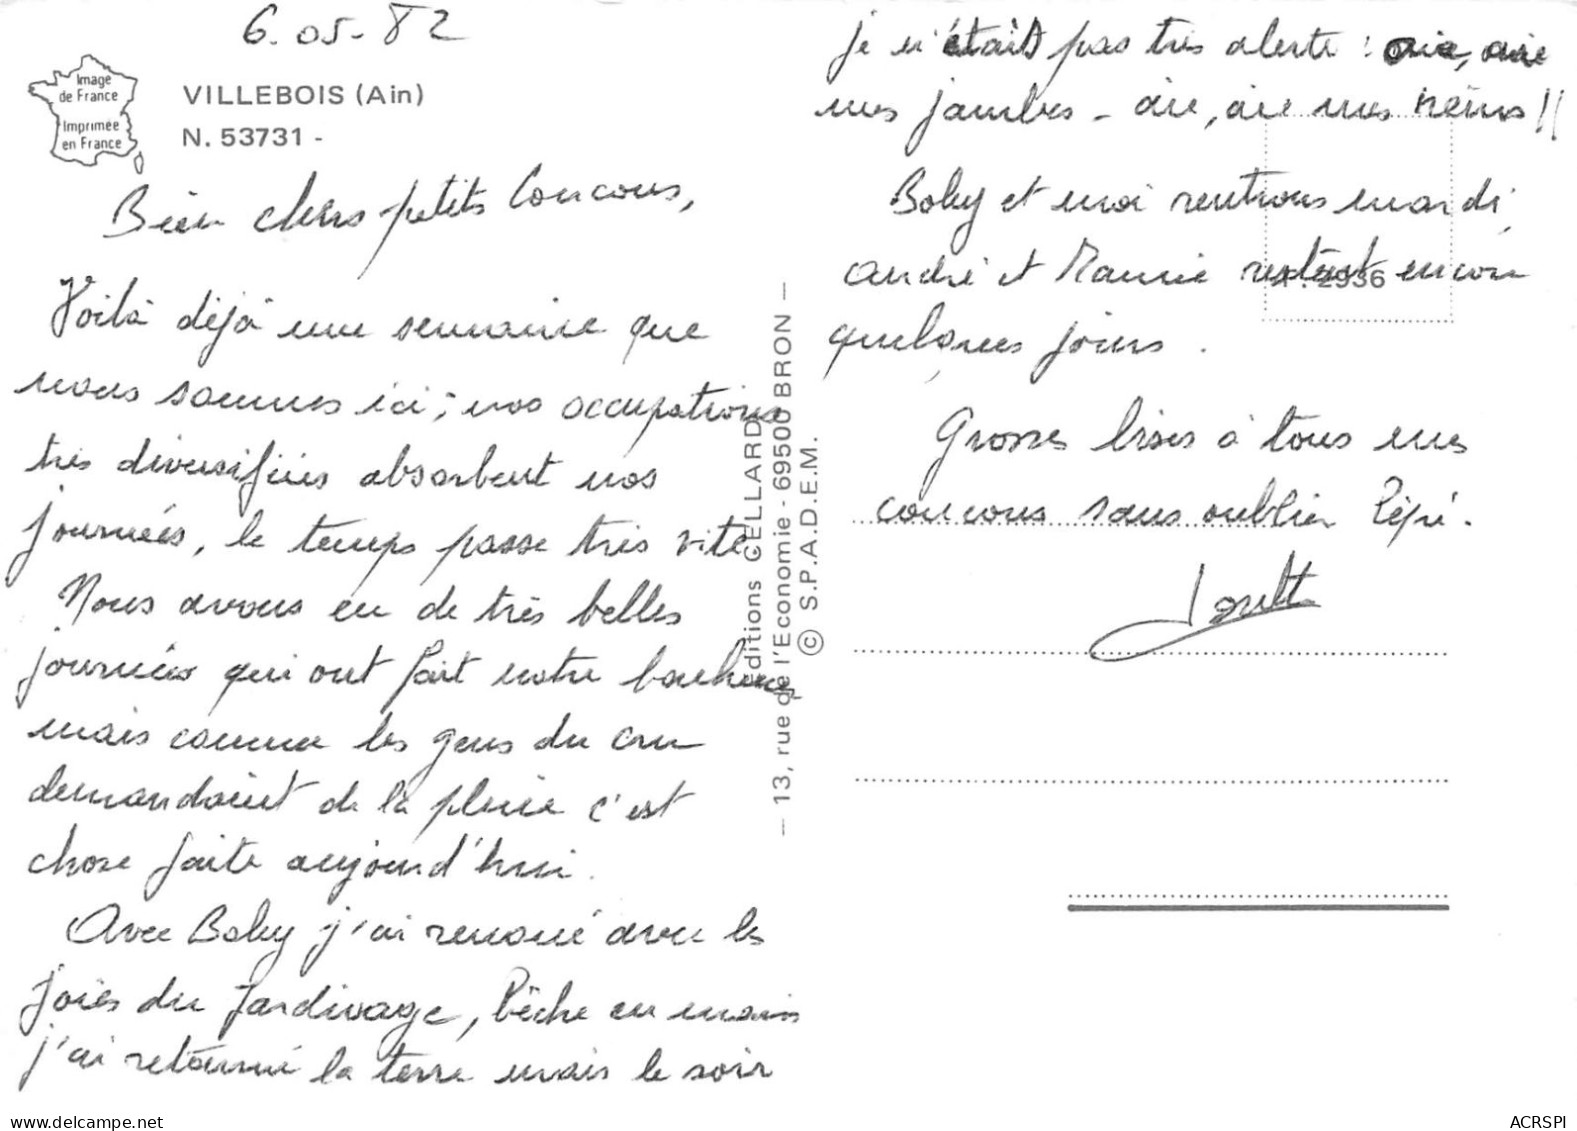 6.05-82
Image
de France
Imprimée
en France
VILLEBOIS (Ain)
N. 53731 -
Bien chers petits Coucous,
Voilà déjà une semaine que
nous sommes ici ; nos occupations
très diversifiées absorbent nos
journées, le temps passe très vite
Nous avons eu de très belles
journées qui ont fait notre bonheur
mais comme les gens du cru
demandaient de la pluie c'est
chose faite aujourd'hui.
Avec Boby j'ai renoué avec les
joies du Jardinage, Bêche en mains
j'ai retourné la terre mais le soir
Editions CELLARD
— 13, rue de l'Economie - 69500 BRON —
© S.P.A.D.E.M.
je n'étais pas très alerte : aie, aie
mes jambes - aie, aie mes reins !!
Boby et moi rentrons mardi,
André et Mamie restent encore
quelques jours.
A. 2936
Grosses bises à tous mes
coucous sans oublier Pépé.
ACRSPI
delcampe.net